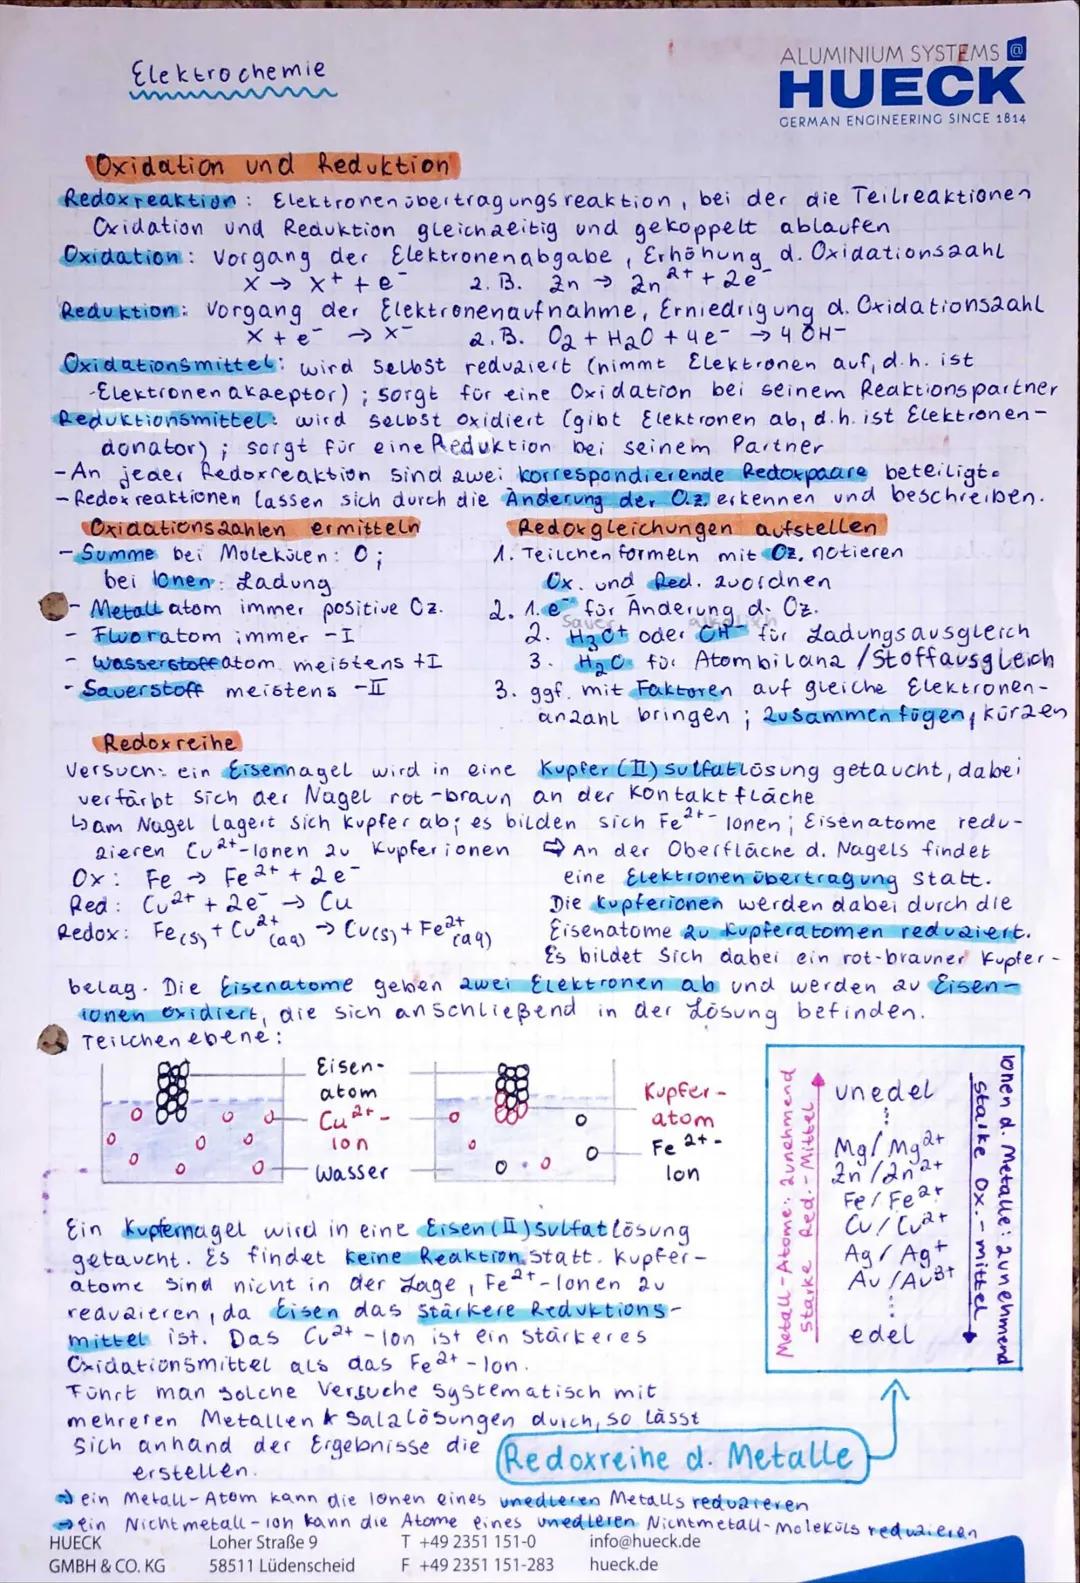 Elektrochemie
ALUMINIUM SYSTEMS @
HUECK
GERMAN ENGINEERING SINCE 1814
Oxidation und Reduktion
Redoxreaktion: Elektronenübertragungsreaktion, bei der die Teilreaktionen
Oxidation und Reduktion gleichzeitig und gekoppelt ablaufen
Oxidation: Vorgang der Elektronenabgabe, Erhöhung d. Oxidationszahl
X → X⁺ + e⁻ z.B. Zn → Zn²⁺ + 2e⁻
Reduktion: Vorgang der Elektronenaufnahme, Erniedrigung d. Oxidationszahl
X + e⁻ → X⁻ z.B. O₂ + H₂O + 4e⁻ → 4 OH⁻
Oxidationsmittel: wird selbst reduziert (nimmt Elektronen auf, d.h. ist
-Elektronenakzeptor); sorgt für eine Oxidation bei seinem Reaktionspartner
Reduktionsmittel: wird selbst oxidiert (gibt Elektronen ab, d.h. ist Elektronen-
donator); sorgt für eine Reduktion bei seinem Partner
-An jeder Redoxreaktion sind zwei korrespondierende Redoxpaare beteiligt.
-Redoxreaktionen lassen sich durch die Änderung der O.z. erkennen und beschreiben.
Oxidationszahlen ermitteln
- Summe bei Molekülen: 0;
bei Ionen: Ladung
- Metallatom immer positive Oz.
- Fluoratom immer -I
- Wasserstoffatom meistens +I
- Sauerstoff meistens -II
Redoxgleichungen aufstellen
1. Teilchenformeln mit Oz. notieren
Ox. und Red. zuordnen
2. 1. e⁻ für Änderung d. Oz.
Sauer alkalisch
2. H₃O⁺ oder OH⁻ für Ladungsausgleich
3. H₂O für Atombilanz / Stoffausgleich
3. ggf. mit Faktoren auf gleiche Elektronen-
anzahl bringen; zusammenfügen, kürzen
Redoxreihe
Versuch: ein Eisennagel wird in eine Kupfer(II)sulfatlösung getaucht, dabei
verfärbt sich der Nagel rot-braun an der Kontaktfläche
↳am Nagel lagert sich Kupfer ab; es bilden sich Fe²⁺-Ionen; Eisenatome redu-
zieren Cu²⁺-Ionen zu Kupferionen
Ox: Fe → Fe²⁺ + 2e⁻
Red: Cu²⁺ + 2e⁻ → Cu
Redox: Fe(s) + Cu²⁺(aq) → Cu(s) + Fe²⁺(aq)
⇨ An der Oberfläche d. Nagels findet
eine Elektronenübertragung statt.
Die Kupferionen werden dabei durch die
Eisenatome zu Kupferatomen reduziert.
Es bildet sich dabei ein rot-brauner Kupfer-
belag. Die Eisenatome geben zwei Elektronen ab und werden zu Eisen-
ionen oxidiert, die sich anschließend in der Lösung befinden.
Teilchenebene:
Eisen-
atom
Cu²⁺-
Ion
Wasser
Kupfer-
atom
Fe²⁺-
Ion
Metall-Atome: zunehmend
starke Red.-Mittel
unedel
⋮
Mg/Mg²⁺
Zn/Zn²⁺
Fe/Fe²⁺
Cu/Cu²⁺
Ag/Ag⁺
Au/Au³⁺
⋮
edel
Ionen d. Metalle: zunehmend
starke Ox.-mittel
Ein Kupfernagel wird in eine Eisen(II)sulfatlösung
getaucht. Es findet keine Reaktion statt. Kupfer-
atome sind nicht in der Lage, Fe²⁺-Ionen zu
reduzieren, da Eisen das stärkere Reduktions-
mittel ist. Das Cu²⁺-Ion ist ein stärkeres
Oxidationsmittel als das Fe²⁺-Ion.
Führt man solche Versuche systematisch mit
mehreren Metallen & Salzlösungen durch, so lässt
sich anhand der Ergebnisse die Redoxreihe d. Metalle
erstellen.
→ ein Metall-Atom kann die Ionen eines unedleren Metalls reduzieren
→ ein Nichtmetall-ion kann die Atome eines unedleren Nichtmetall-Moleküls reduzieren
HUECK Loher Straße 9 T +49 2351 151-0 info@hueck.de
GMBH & CO. KG 58511 Lüdenscheid F +49 2351 151-283 hueck.de